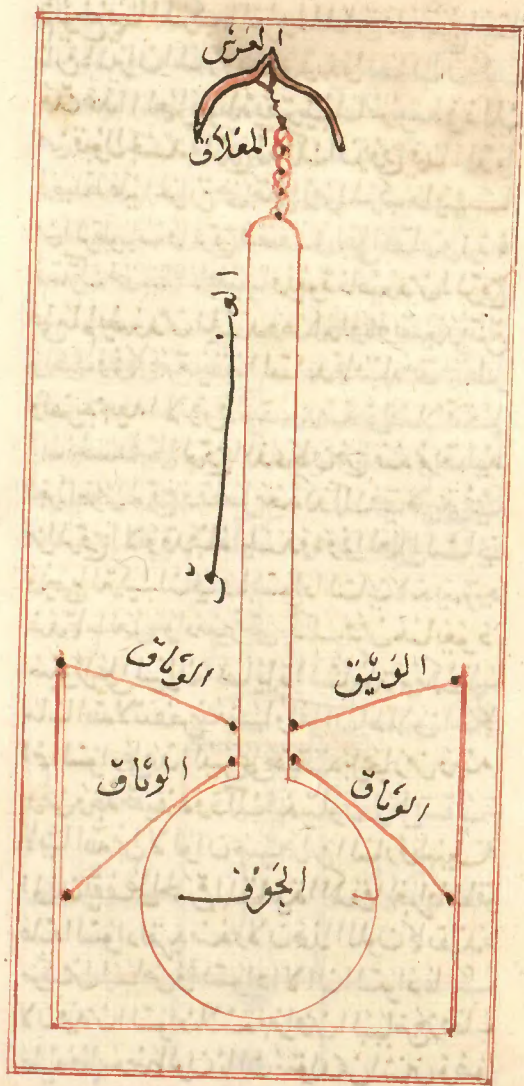 العرش
المعلاق
العنق
الوثيق
الوثاق
الوثاق
الوثاق
الجوف